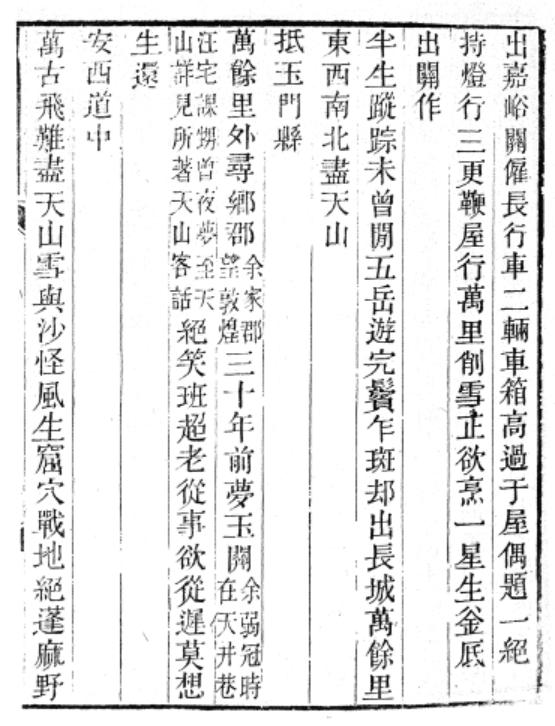 出嘉峪關僱長行車二輛車箱高過于屋偶題一絕
持燈行三更鞭屋行萬里削雪正欲烹一星生釜底
出關作
半生蹤踪未曾閒五岳遊完鬢乍斑却出長城萬餘里
東西南北盡天山
抵玉門縣
萬餘里外尋鄉郡余家郡望敦煌三十年前夢玉關余弱冠時在天井巷
汪宅課甥曾夜夢至天山詳見所著天山客話絕笑班超老從事欲從遲莫想
生還
安西道中
萬古飛難盡天山雪與沙怪風生窟穴戰地絕蓬麻野